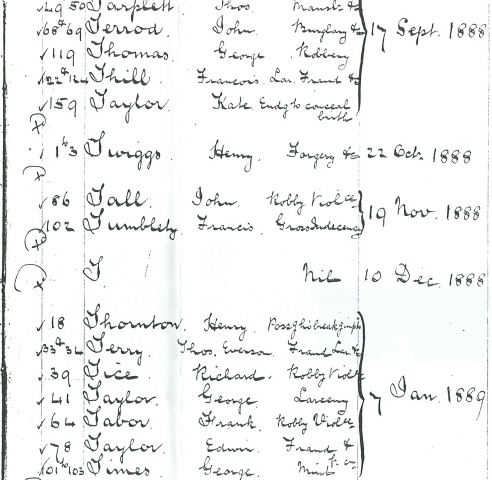 49 50 Tarplett Thos. Mansl. &c
68 & 69 Terrod. John. Burglary &c
119 Thomas. George Robbery 17 Sept. 1888
122 & 124 Thill. Francois. Lar. Fraud &c
159 Taylor. Kate Endg to conceal birth
1 to 3 Twiggs. Henry. Forgery &c 22 Oct. 1888
86 Tall. John. Robby Violce
102 Tumblety. Francis. Gross Indecency 19 Nov. 1888
T. Nil 10 Dec. 1888
18 Thornton. Henry.
33 & 34 Terry. Thos. Everson Fraud Lar. &c
39 Tice. Richard. Robby Violce
41 Taylor. George Larceny 7 Jan. 1889
64 Tabor. Frank. Robby Violce
78 Taylor. Edwin. Fraud &
101 to 103 Times. George.